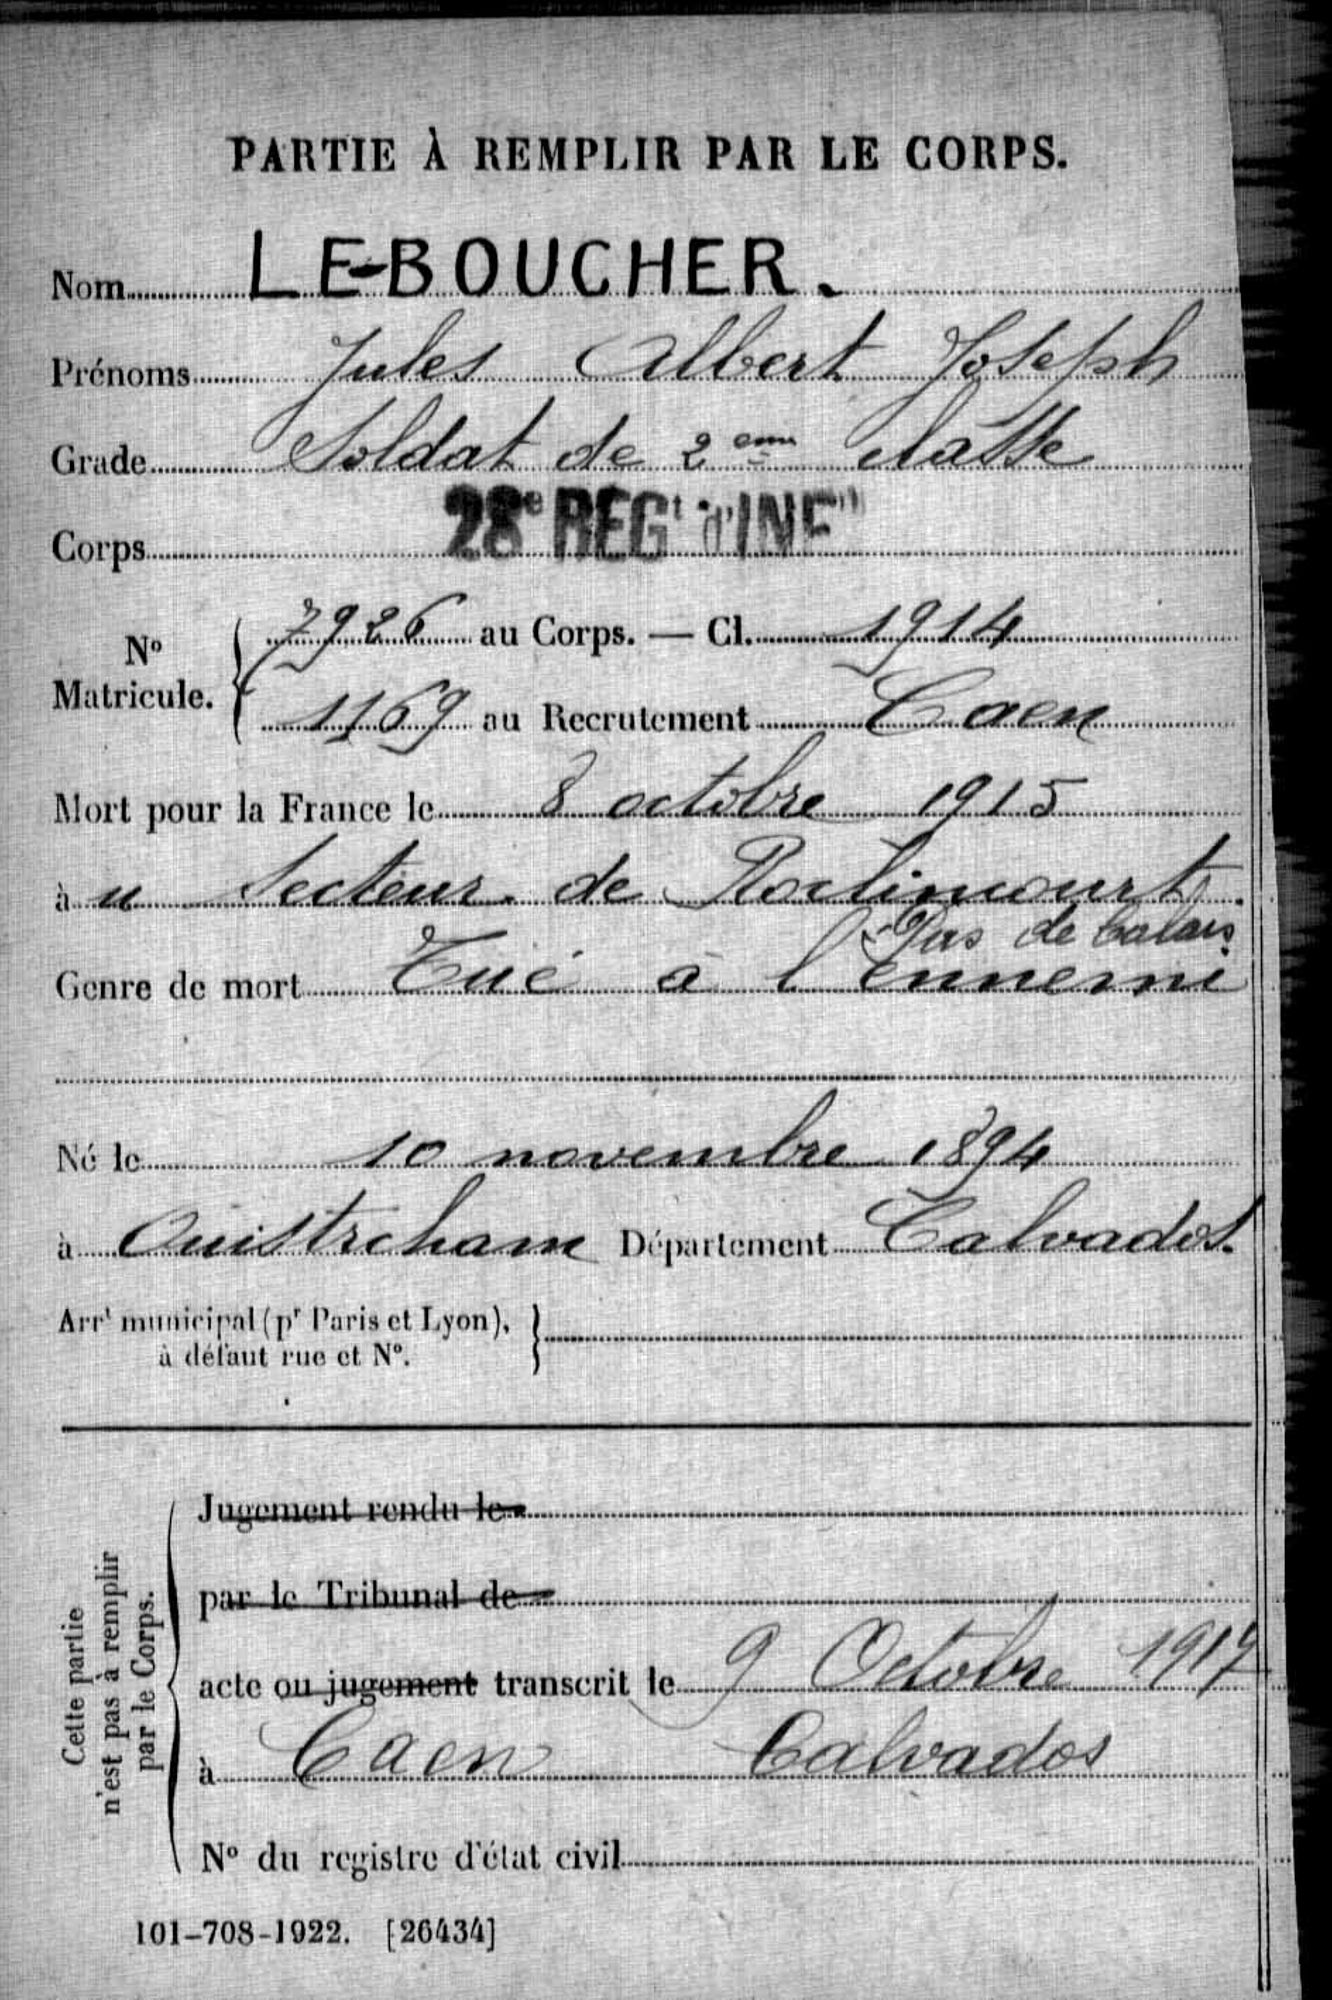 PARTIE À REMPLIR PAR LE CORPS.
Nom LE-BOUCHER.
Prénoms Jules Albert Joseph
Grade Soldat de 2eme classe
Corps 28e REGt d'INFie
7926 au Corps. — Cl. 1914
No Matricule.
1169 au Recrutement Caen
Mort pour la France le 8 octobre 1915
à u Secteur de Roclincourt
Pas de Calais
Genre de mort Tué à l'ennemi
Né le 10 novembre 1894
à Ouistreham Département Calvados.
Arrt municipal (pr Paris et Lyon),
à défaut rue et No.
Cette partie
n'est pas à remplir
par le Corps.
Jugement rendu le
par le Tribunal de
acte ou jugement transcrit le 9 Octobre 1917
à Caen Calvados
No du registre d'état civil
101-708-1922. [26434]